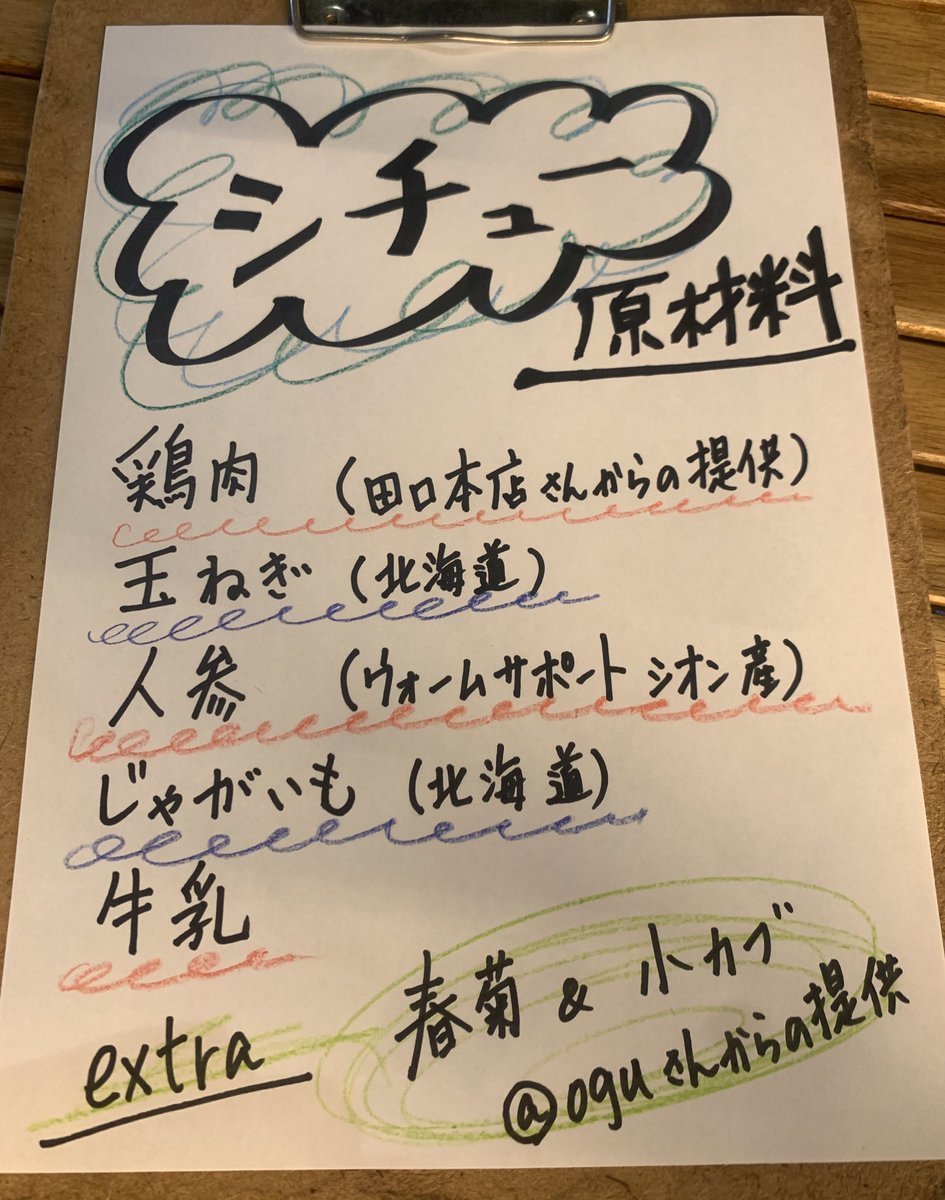 シチュー
原材料
鶏肉 (田口本店さんからの提供)
玉ねぎ (北海道)
人参 (ウォームサポート シオン産)
じゃがいも (北海道)
牛乳
extra
春菊 & 小カブ
@oguさんからの提供